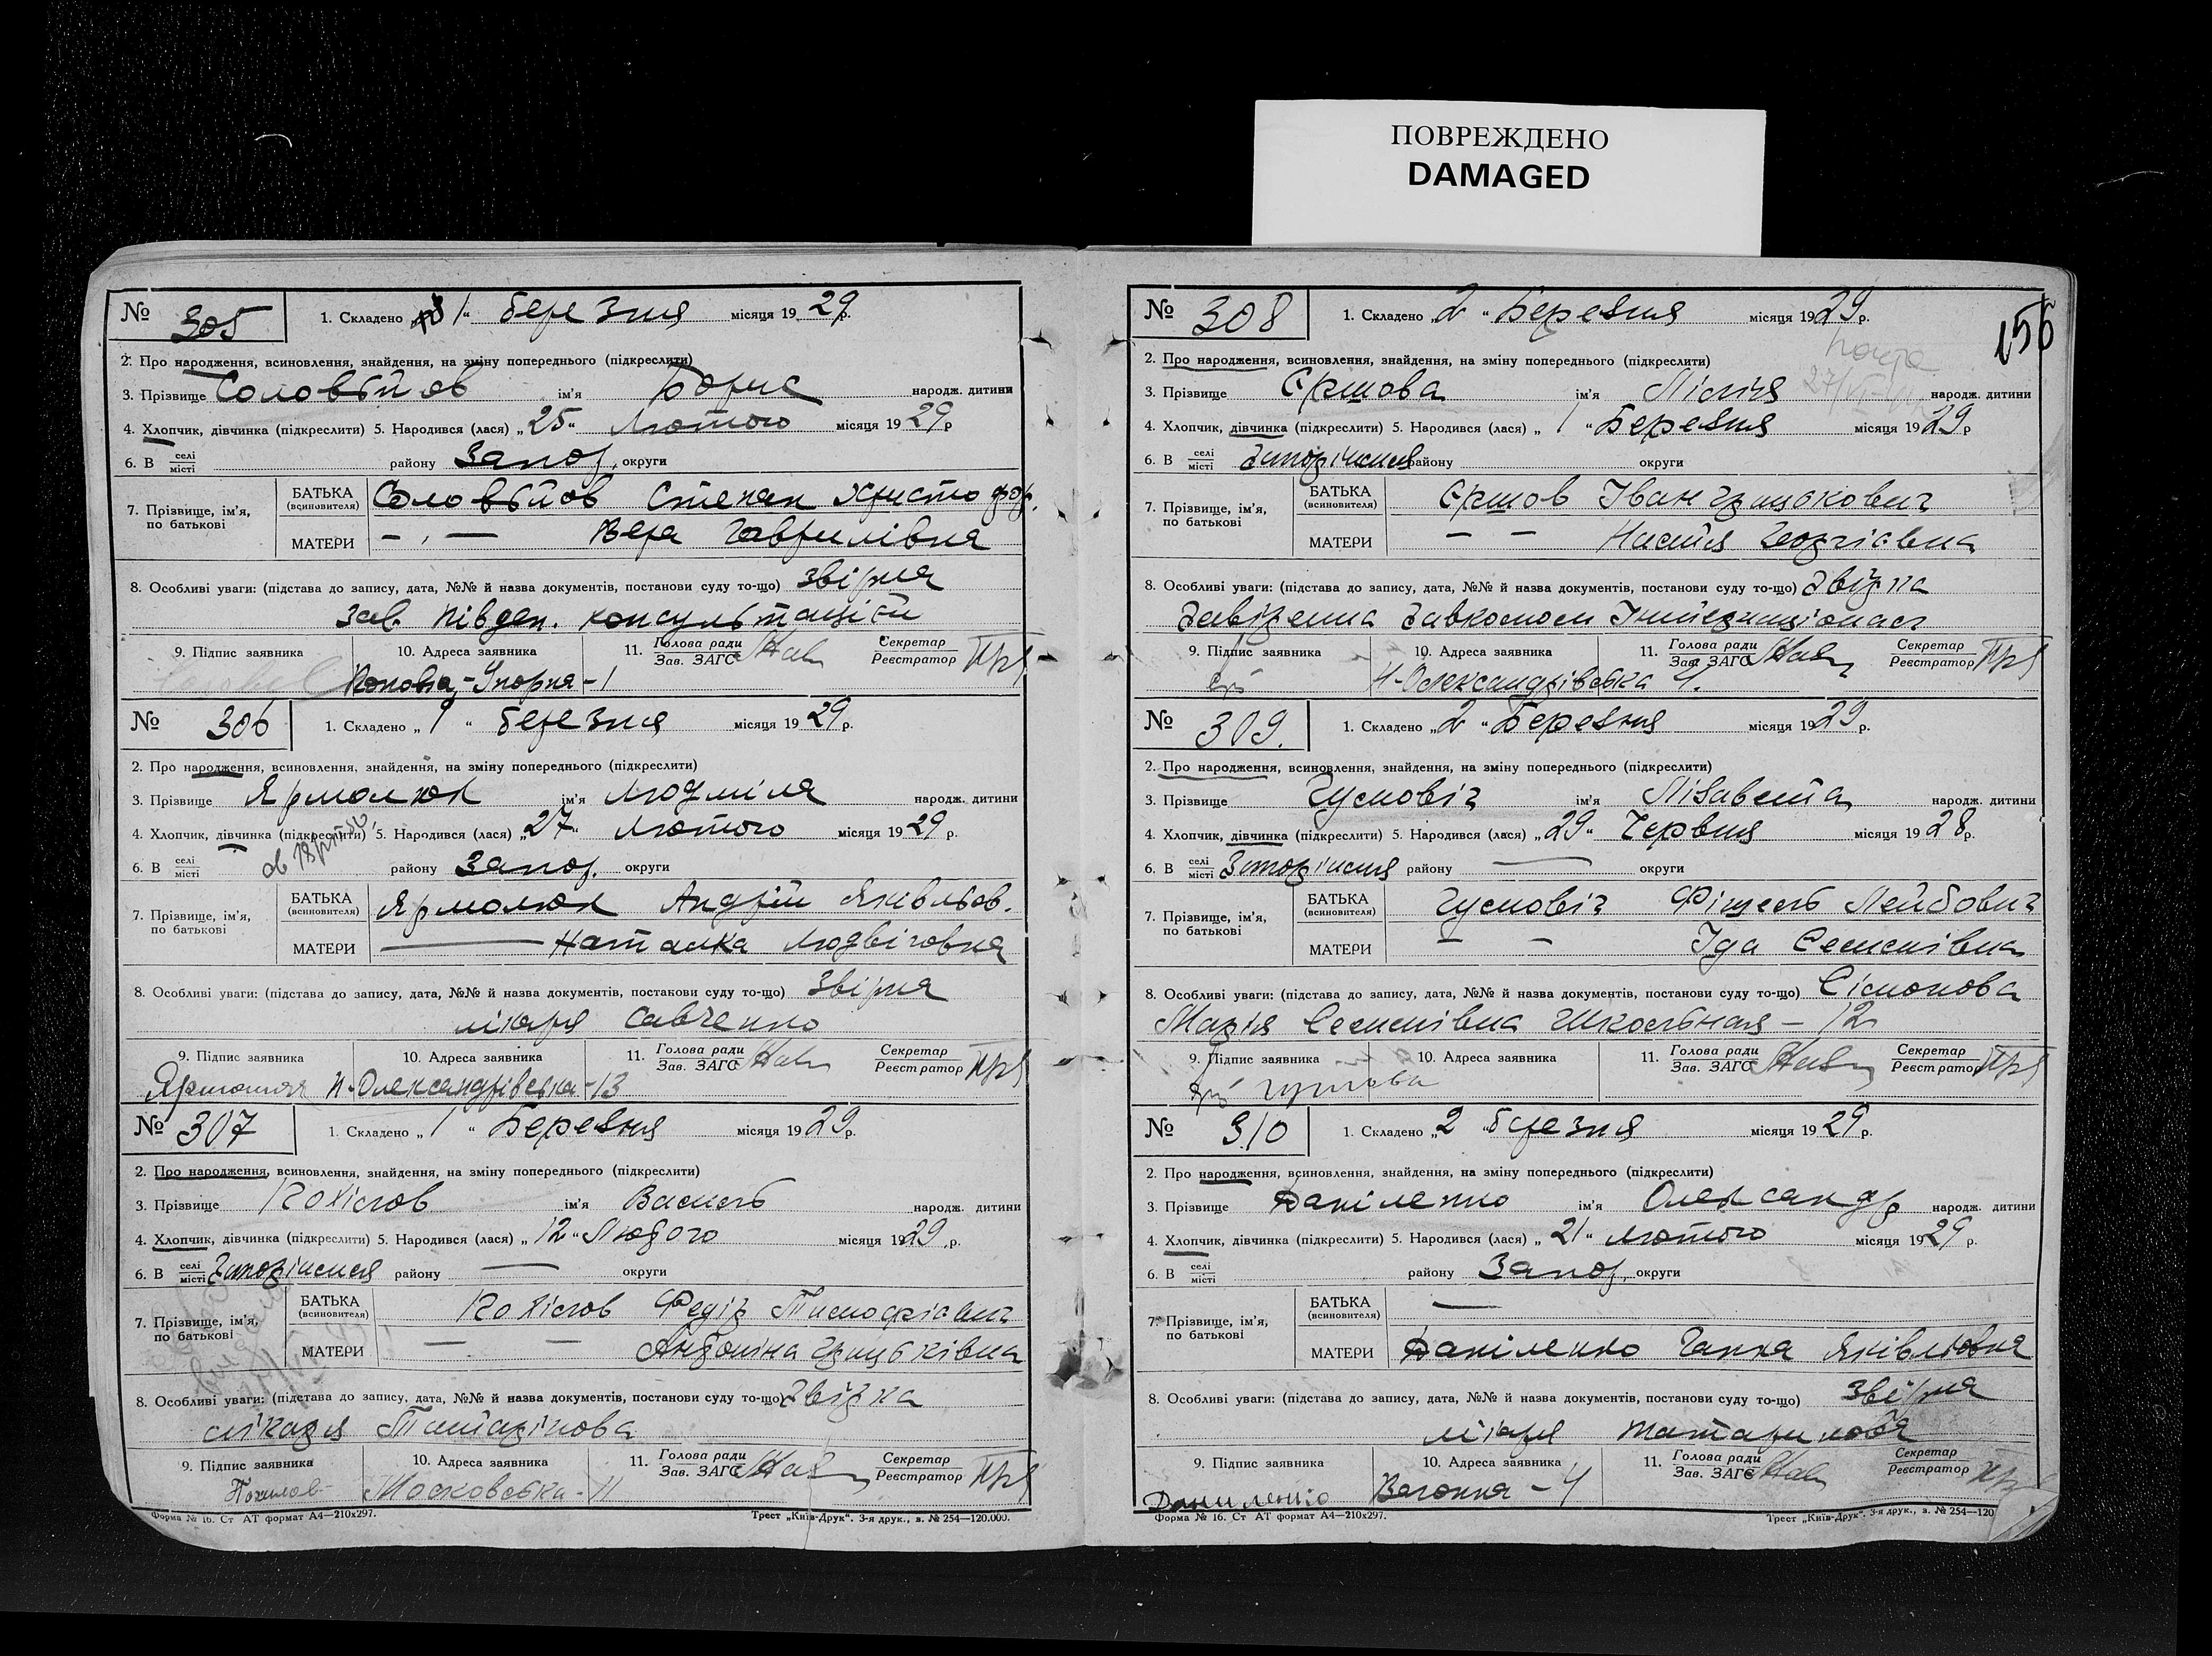 ПОВРЕЖДЕНО
DAMAGED
№ 305
1. Складено 1 " березня місяця 1929 р.
2. Про народження, всиновлення, знайдення, на зміну попереднього (підкреслити)
3. Прізвище Соловьйов ім'я Борис народж. дитини
4. Хлопчик, дівчинка (підкреслити) 5. Народився (лася) „ 25 " Лютого місяця 1929 р
6. В селі місті району Запор. округи
7. Прізвище, ім'я, по батькові
БАТЬКА (всиновителя) Соловьйов Степан Христофор.
МАТЕРИ — „ — Вера Гаврилівна
8. Особливі уваги: (підстава до запису, дата, №№ й назва документів, постанови суду то-що) Звірка
Зав. Півден. консультації
9. Підпис заявника 10. Адреса заявника 11. Голова ради Зав. ЗАГС Секретар Реєстратор
Упорна - 1
№ 306
1. Складено „ 1 " березня місяця 1929 р.
2. Про народження, всиновлення, знайдення, на зміну попереднього (підкреслити)
3. Прізвище Ярмолюк ім'я Людміла народж. дитини
4. Хлопчик, дівчинка (підкреслити) 5. Народився (лася) „ 27 " Лютого місяця 1929 р.
6. В селі місті району Запор. округи
7. Прізвище, ім'я, по батькові
БАТЬКА (всиновителя) Ярмолюк Андрій Яківльов.
МАТЕРИ — Наталка Людвіговна
8. Особливі уваги: (підстава до запису, дата, №№ й назва документів, постанови суду то-що) Звірка
лікаря Савченко
9. Підпис заявника 10. Адреса заявника 11. Голова ради Зав. ЗАГС Секретар Реєстратор
Н-Олександрівська - 13
№ 307
1. Складено „ 1 " Березня місяця 1929 р.
2. Про народження, всиновлення, знайдення, на зміну попереднього (підкреслити)
3. Прізвище Похілов ім'я Василь народж. дитини
4. Хлопчик, дівчинка (підкреслити) 5. Народився (лася) „ 12 " Лютого місяця 1929 р.
6. В селі місті Запоріжжя району — округи
7. Прізвище, ім'я, по батькові
БАТЬКА (всиновителя) Похілов Федір Тимофієвич
МАТЕРИ — — Антоніна Грицьківна
8. Особливі уваги: (підстава до запису, дата, №№ й назва документів, постанови суду то-що) Звірка
лікаря Татарінова
9. Підпис заявника 10. Адреса заявника 11. Голова ради Зав. ЗАГС Секретар Реєстратор
Московська - 11
Форма № 16. Ст АТ формат А4—210х297. Трест „Київ-Друк". 3-я друк., з. № 254—120.000.
156
№ 308
1. Складено „ 2 " Березня місяця 1929 р.
2. Про народження, всиновлення, знайдення, на зміну попереднього (підкреслити)
3. Прізвище Єршова ім'я Лілія народж. дитини
4. Хлопчик, дівчинка (підкреслити) 5. Народився (лася) „ 1 " Березня місяця 1929 р
6. В селі місті Запоріжжя району округи
7. Прізвище, ім'я, по батькові
БАТЬКА (всиновителя) Єршов Іван Грицькович
МАТЕРИ — — Настя Георгієвна
8. Особливі уваги: (підстава до запису, дата, №№ й назва документів, постанови суду то-що) Звірка
Завірена Завкомом Інтернаціонал
9. Підпис заявника 10. Адреса заявника 11. Голова ради Зав. ЗАГС Секретар Реєстратор
Н-Олександрівська 4.
№ 309.
1. Складено „ 2 " Березня місяця 1929 р.
2. Про народження, всиновлення, знайдення, на зміну попереднього (підкреслити)
3. Прізвище Гусновіч ім'я Лізавета народж. дитини
4. Хлопчик, дівчинка (підкреслити) 5. Народився (лася) „ 29 " Червня місяця 1928 р.
6. В селі місті Запоріжжя району — округи
7. Прізвище, ім'я, по батькові
БАТЬКА (всиновителя) Гусновіч Фішель Лейбович
МАТЕРИ — — Іда Семенівна
8. Особливі уваги: (підстава до запису, дата, №№ й назва документів, постанови суду то-що) Сімонова
Марія Семенівна Школьная - 12
9. Підпис заявника 10. Адреса заявника 11. Голова ради Зав. ЗАГС Секретар Реєстратор
№ 310
1. Складено „ 2 " березня місяця 1929 р.
2. Про народження, всиновлення, знайдення, на зміну попереднього (підкреслити)
3. Прізвище Даніленко ім'я Олександр народж. дитини
4. Хлопчик, дівчинка (підкреслити) 5. Народився (лася) „ 21 " Лютого місяця 1929 р.
6. В селі місті району Запор. округи
7. Прізвище, ім'я, по батькові
БАТЬКА (всиновителя) —
МАТЕРИ Даніленко Ганна Яківльовна
8. Особливі уваги: (підстава до запису, дата, №№ й назва документів, постанови суду то-що) Звірка
лікаря Татаринова
9. Підпис заявника 10. Адреса заявника 11. Голова ради Зав. ЗАГС Секретар Реєстратор
Даниленко Вагонна - 4
Форма № 16. Ст АТ формат А4—210х297. Трест „Київ-Друк". 3-я друк., з. № 254—120